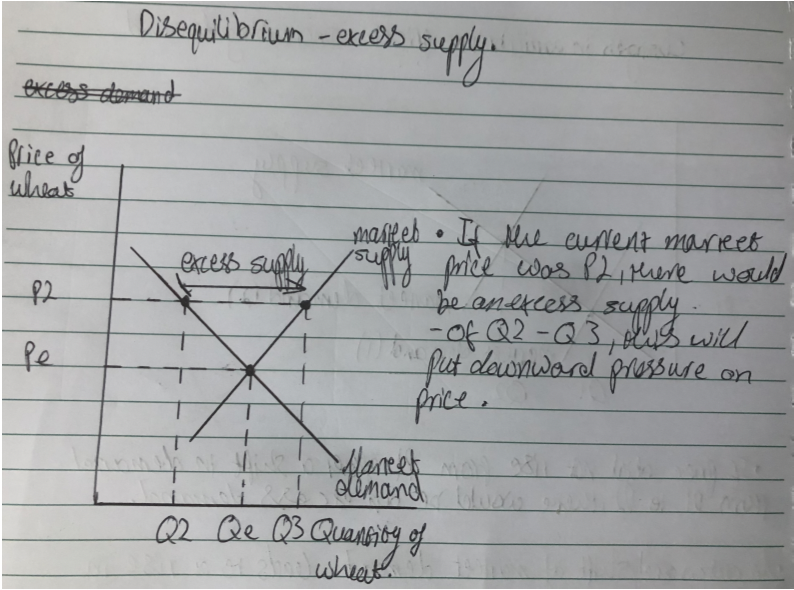 Disequilibrium - excess supply.
excess demand
Price of
wheat
market
supply
excess supply
P2
Pe
• If the current market
price was P2, there would
be an excess supply.
- Of Q2 - Q3, this will
put downward pressure on
price.
Market
demand
Q2 Qe Q3 Quantity of
wheat.